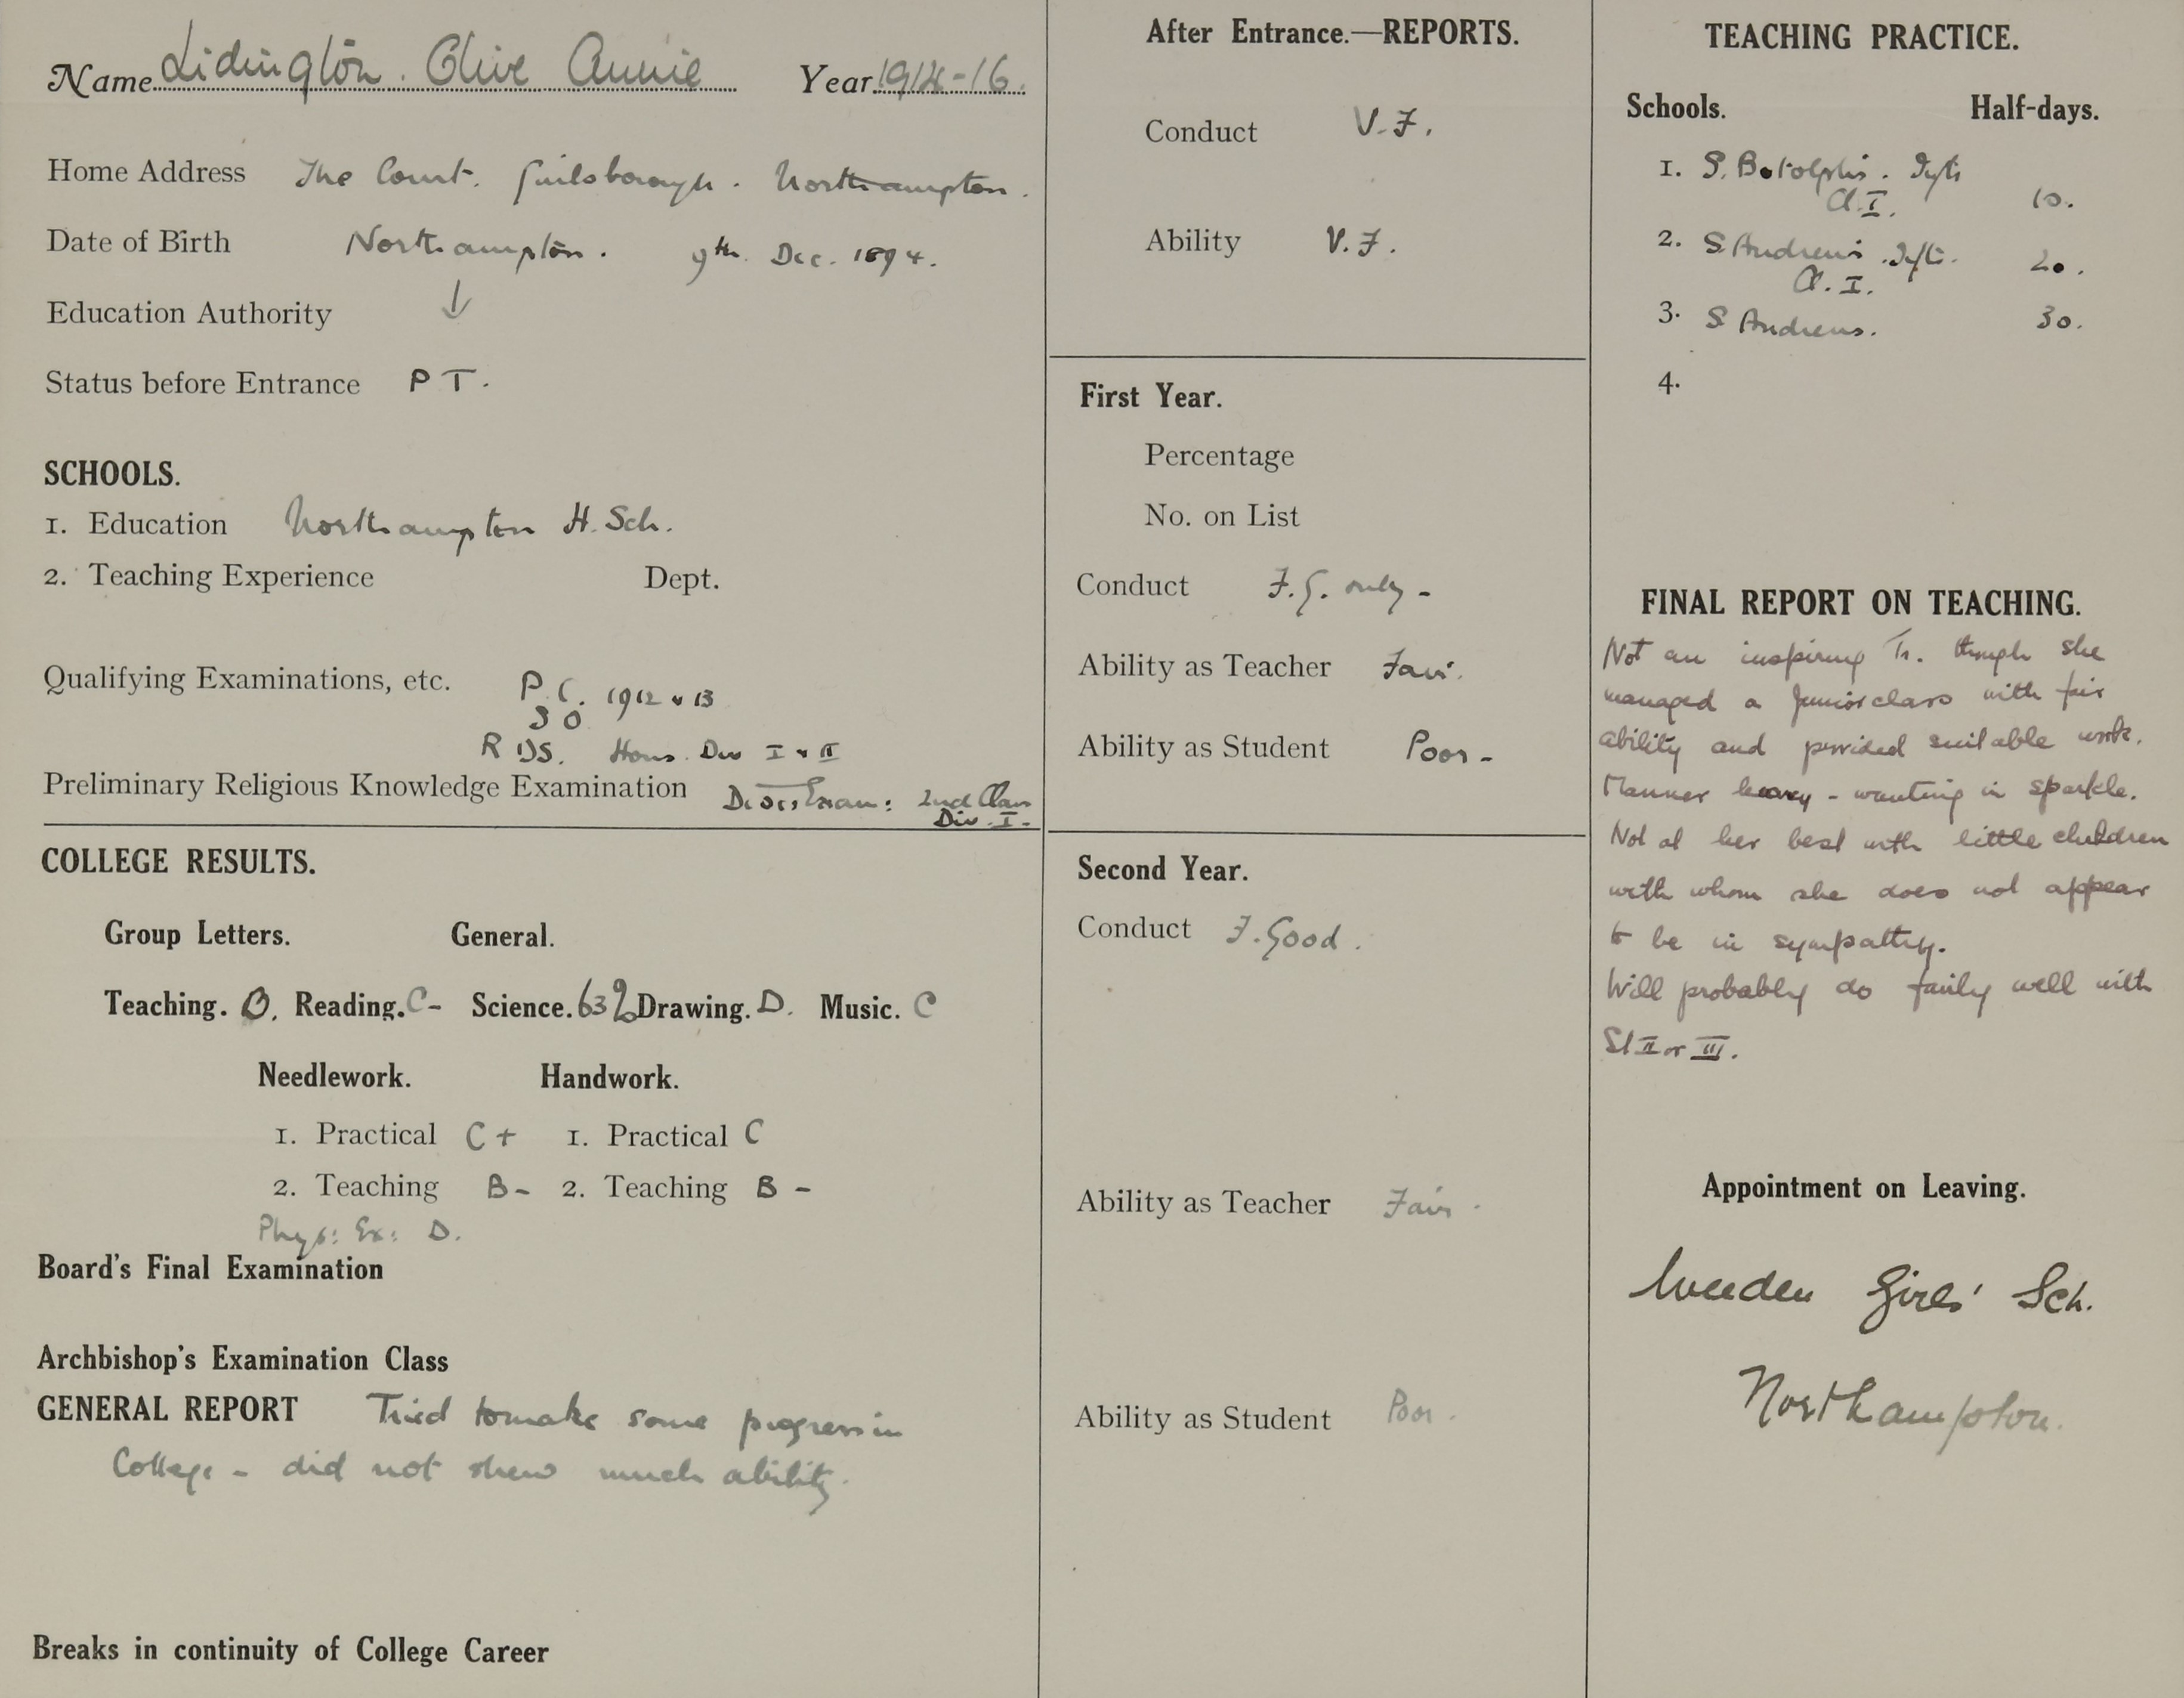 Name Lidington. Olive Annie Year 1914-16.
Home Address The Court. Guilsborough. Northampton.
Date of Birth Northampton. 9th. Dec. 1894.
Education Authority ↓
Status before Entrance P T.
SCHOOLS.
1. Education Northampton H. Sch.
2. Teaching Experience Dept.
Qualifying Examinations, etc. P. C. 1912 & 13
S O
R DS. Hons. Div I & II
Preliminary Religious Knowledge Examination Dioces Exam: 2nd Class
Div. I.
COLLEGE RESULTS.
Group Letters. General.
Teaching. Reading. C- Science. 63% Drawing. D. Music. C
Needlework. Handwork.
1. Practical C+ 1. Practical C
2. Teaching B- 2. Teaching B -
Phys: Ex: D.
Board's Final Examination
Archbishop's Examination Class
GENERAL REPORT Tried to make some progress in
College - did not shew much ability.
Breaks in continuity of College Career
After Entrance.—REPORTS.
Conduct V. F.
Ability V. F.
First Year.
Percentage
No. on List
Conduct F. G. only -
Ability as Teacher Fair.
Ability as Student Poor -
Second Year.
Conduct F. Good.
Ability as Teacher Fair.
Ability as Student Poor.
TEACHING PRACTICE.
Schools. Half-days.
1. S. Botolph's. Infts
Cl. I. 10.
2. S Andrew's. Infts. 20.
Cl. I.
3. S Andrews. 30.
4.
FINAL REPORT ON TEACHING.
Not an inspiring Tr. though she
managed a Junior class with fair
ability and provided suitable work.
Manner heavy - wanting in sparkle.
Not at her best with little children
with whom she does not appear
to be in sympathy.
Will probably do fairly well with
St II or III.
Appointment on Leaving.
Weedon Girls' Sch.
Northampton.